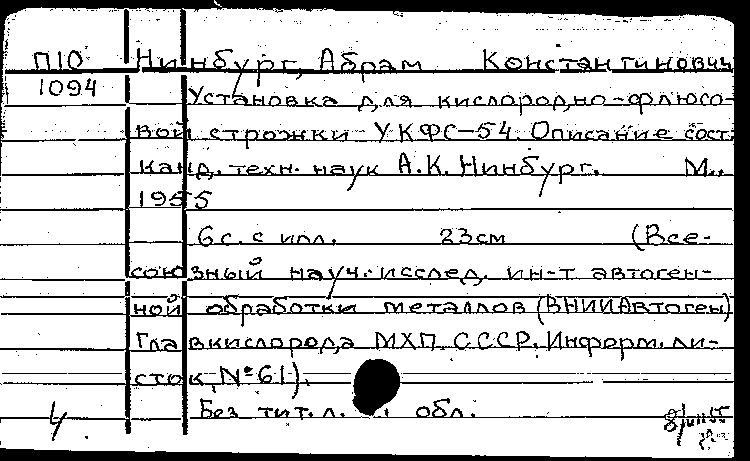 П10 Нинбург, Абрам Константинович
1094 Установка для кислородно-флюсо-
вой строжки УКФС-54. Описание сост.
канд. техн. наук А.К. Нинбург. М.,
1955
6 с. с илл. 23см (Все-
союзный науч.-исслед. ин-т автоген-
ной обработки металлов (ВНИИАвтоген)
Главкислорода МХП СССР. Информ. ли-
сток, № 61).
Без тит. л. обл.